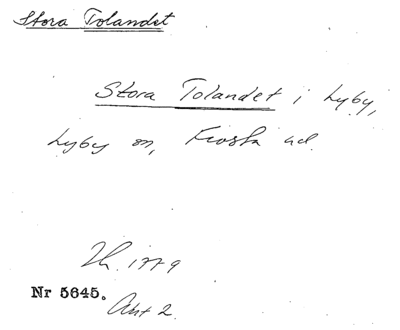 Stora Tolandet
Stora Tolandet i Lyby,
Lyby sn, Frosta hd.
Lh. 1779
Nr 5645.
Akt 2.